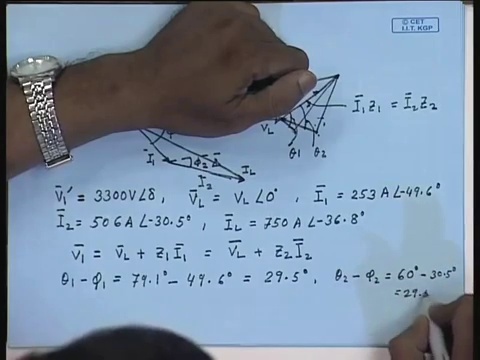 © CET
I.I.T. KGP
Ī₁Z₁ = Ī₂Z₂
V_L
θ₁ θ₂
Ī₁ φ₂
Ī₂ I_L
V̄₁' = 3300V∠δ, V̄_L = V_L∠0°, Ī₁ = 253A∠-49.6°
Ī₂ = 506A∠-30.5°, Ī_L = 750A∠-36.8°
V̄₁ = V̄_L + Z₁Ī₁ = V̄_L + Z₂Ī₂
θ₁ - φ₁ = 79.1° - 49.6° = 29.5°, θ₂ - φ₂ = 60° - 30.5°
= 29.